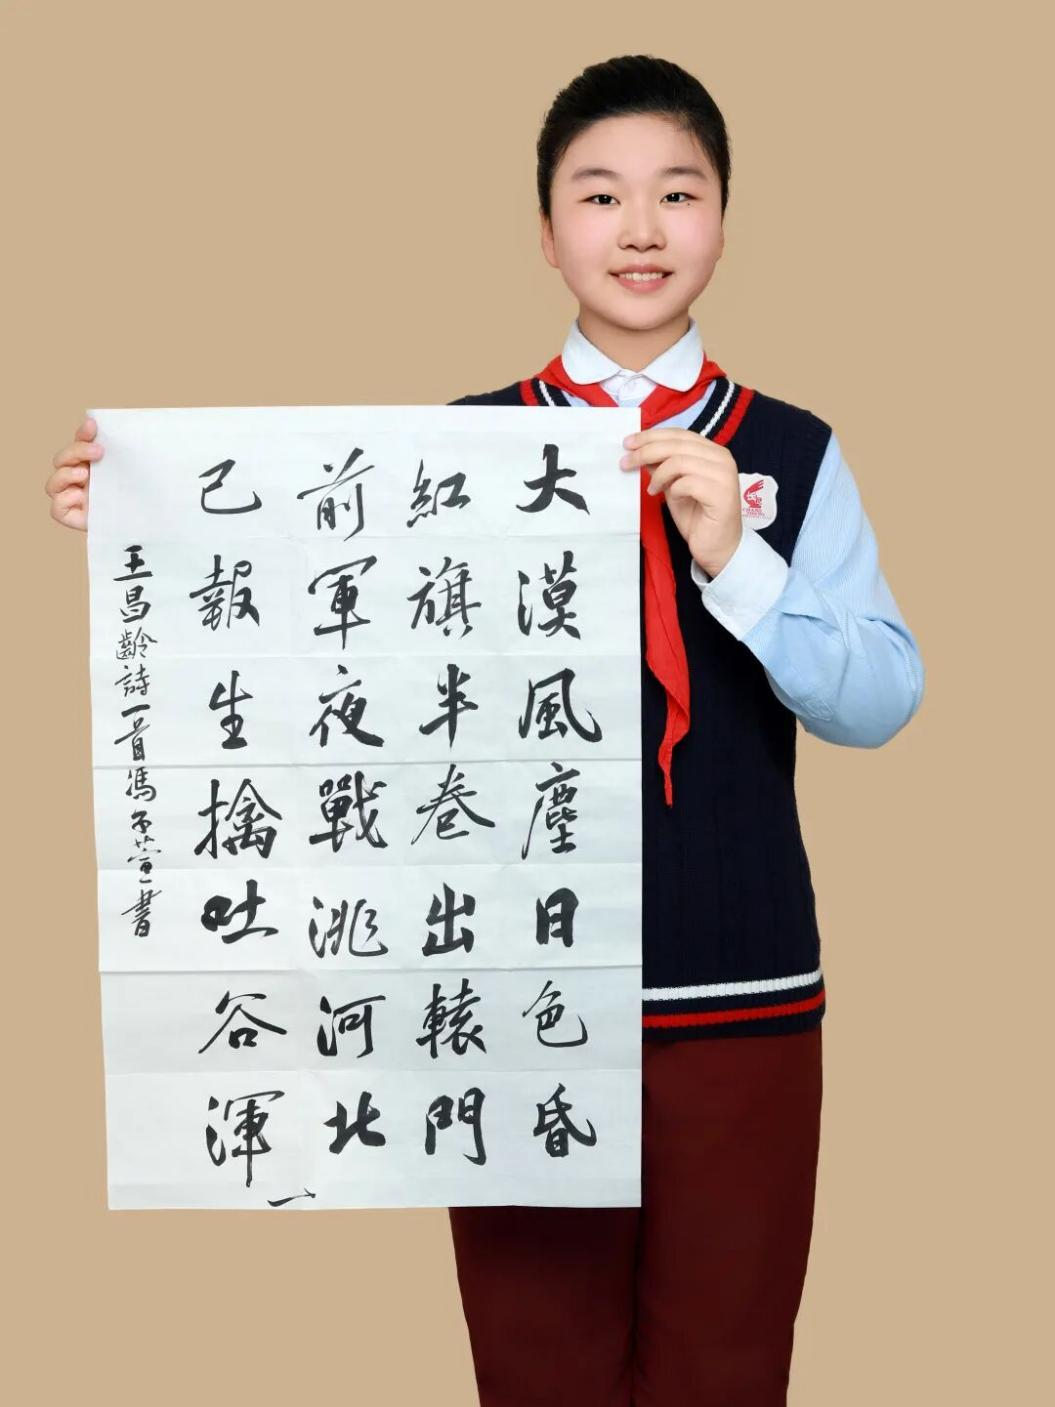 大漠風塵日色昏
紅旗半卷出轅門
前軍夜戰洮河北
已報生擒吐谷渾
王昌齡詩一首馮子萱書